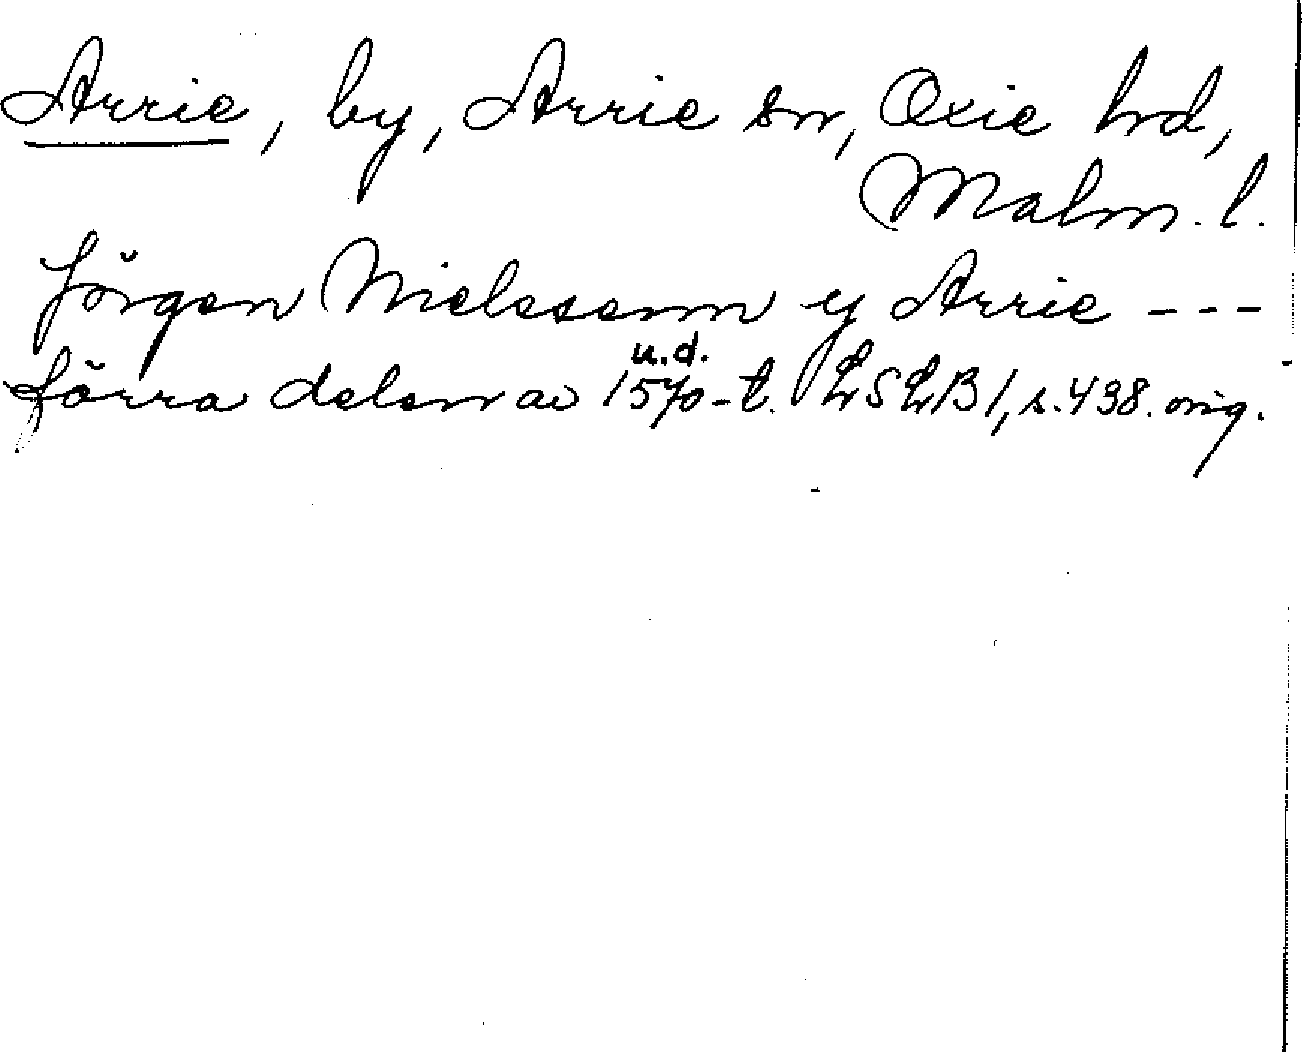 Arrie, by, Arrie sn, Oxie hd,
Malm. l.
Jörgen Nielssenn y Arrie ---
u.d.
förra delen av 1570-t. LSLB 1, s. 438. orig.